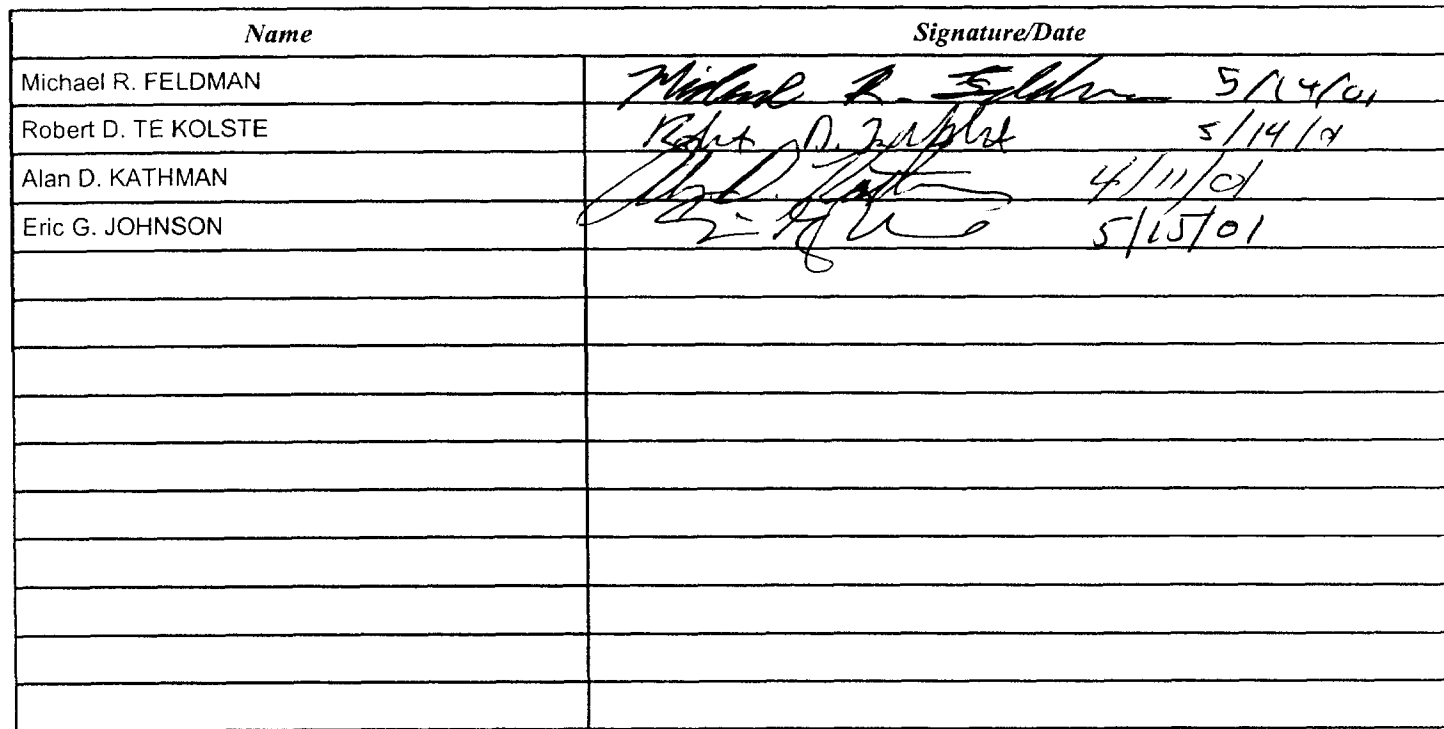 Name Signature/Date
Michael R. FELDMAN Michael R. Feldman 5/14/01
Robert D. TE KOLSTE Robert D. Te Kolste 5/14/01
Alan D. KATHMAN Alan D. Kathman 4/11/01
Eric G. JOHNSON 5/15/01